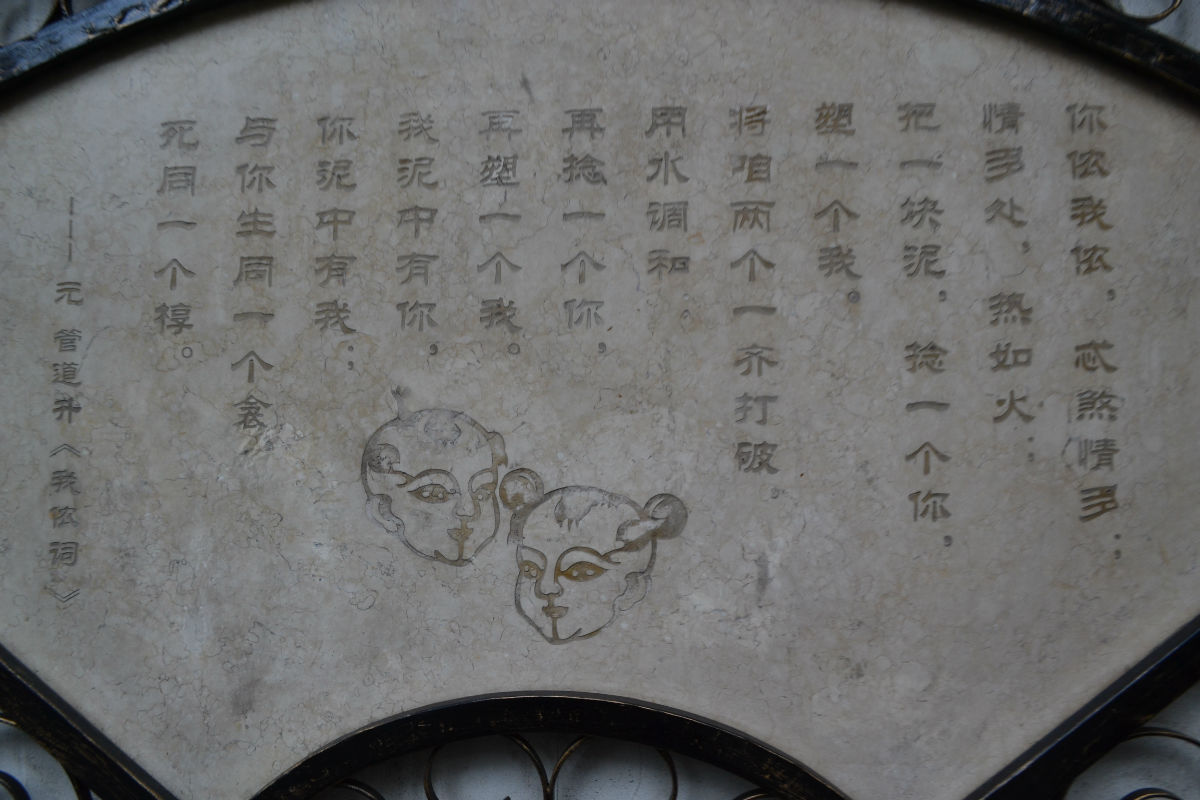 你侬我侬，忒煞情多；
情多处，热如火；
把一块泥，捻一个你，
塑一个我。
将咱两个一齐打破。
用水调和。
再捻一个你，
再塑一个我。
我泥中有你，
你泥中有我；
与你生同一个衾，
死同一个椁。
———元 管道升《我侬词》